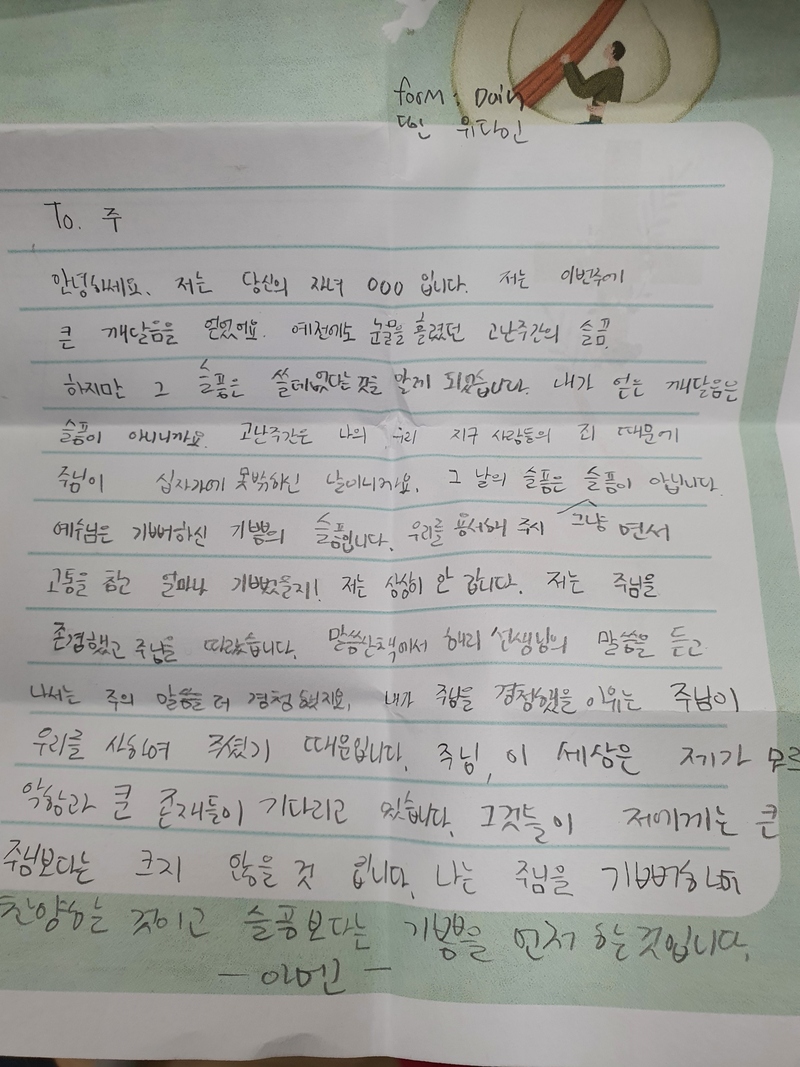 form: Dain
다인 위다인
To. 주
안녕하세요. 저는 당신의 자녀 000 입니다. 저는 이번주에
큰 깨달음을 얻었어요. 예전에도 눈물을 흘렸던 고난주간의 슬픔.
하지만 그 슬픔은 쓸데없다는 것을 알게 되었습니다. 내가 얻는 깨달음은
슬픔이 아니니까요. 고난주간은 나의 우리 지구 사람들의 죄 때문에
주님이 십자가에 못박하신 날이니까요. 그 날의 슬픔은 슬픔이 아닙니다.
예수님은 기뻐하신 기쁨의 슬픔입니다. 우리를 용서해 주시 그냥 면서
고통을 참고 얼마나 기뻤을지! 저는 상상이 안 갑니다. 저는 주님을
존경했고 주님을 따랐습니다. 말씀산책에서 해리 선생님의 말씀을 듣고
나서는 주의 말씀을 더 경청했지요. 내가 주님을 경청했을 이유는 주님이
우리를 사하여 주셨기 때문입니다. 주님, 이 세상은 제가 모르
악함과 큰 존재들이 기다리고 있습니다. 그것들이 저에게는 큰
주님보다는 크지 않을 것 입니다. 나는 주님을 기뻐하며
찬양하는 것이고 슬픔보다는 기쁨을 먼저 하는 것입니다.
- 아멘 -